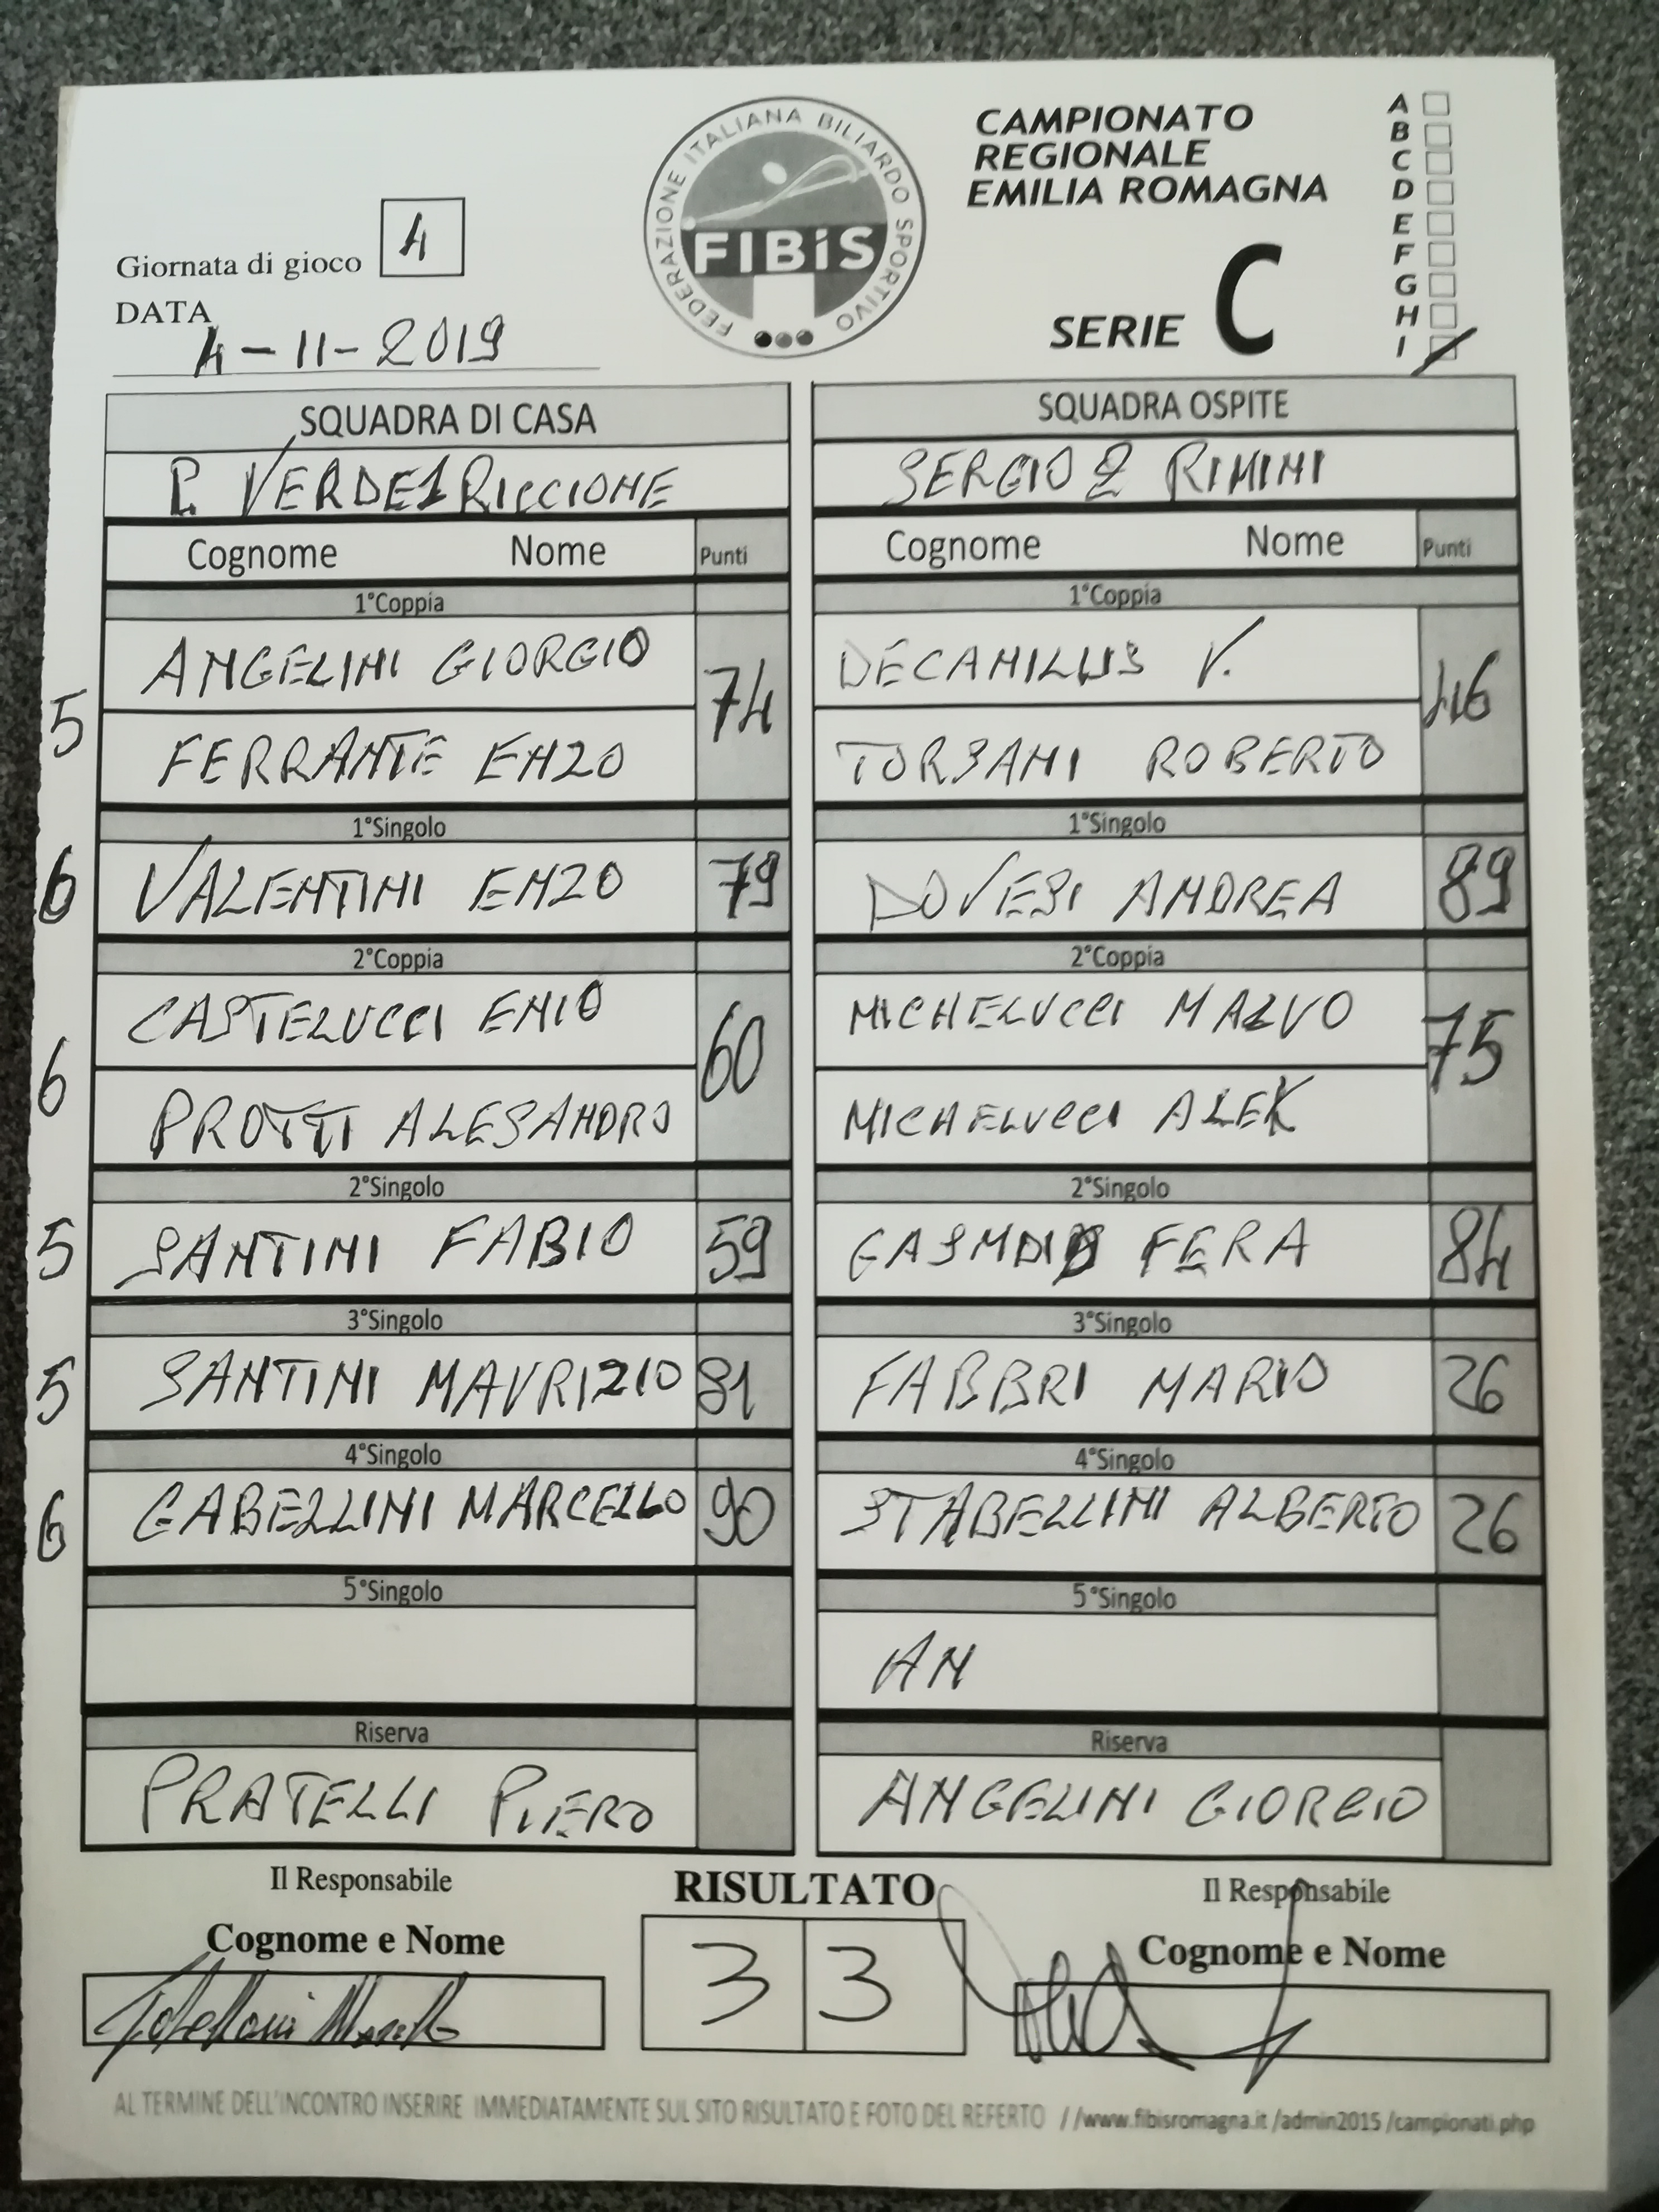 FEDERAZIONE ITALIANA BILIARDO SPORTIVO
FIBiS
CAMPIONATO
REGIONALE
EMILIA ROMAGNA
SERIE C
A
B
C
D
E
F
G
H
I
Giornata di gioco 4
DATA
4-11-2019
SQUADRA DI CASA
P. VERDE1 RICCIONE
Cognome Nome Punti
1°Coppia
5
ANGELINI GIORGIO 74
FERRANTE ENZO
1°Singolo
6 VALENTINI ENZO 79
2°Coppia
CASTELUCCI ENIO 60
6
PROTTI ALESANDRO
2°Singolo
5 SANTINI FABIO 59
3°Singolo
5 SANTINI MAURIZIO 81
4°Singolo
6 GABELLINI MARCELLO 90
5°Singolo
Riserva
PRATELLI PIERO
SQUADRA OSPITE
SERGIO 2 RIMINI
Cognome Nome Punti
1°Coppia
DECAMILLIS V. 46
TORSANI ROBERTO
1°Singolo
DOVESI ANDREA 89
2°Coppia
MICHELUCCI MALVO 75
MICHELUCCI ALEX
2°Singolo
FERA 84
3°Singolo
FABBRI MARIO 26
4°Singolo
STABELLINI ALBERTO 26
5°Singolo
AN
Riserva
ANGELINI GIORGIO
Il Responsabile
Cognome e Nome
RISULTATO
3 3
Il Responsabile
Cognome e Nome
AL TERMINE DELL'INCONTRO INSERIRE IMMEDIATAMENTE SUL SITO RISULTATO E FOTO DEL REFERTO //www.fibisromagna.it /admin2015 /campionati.php